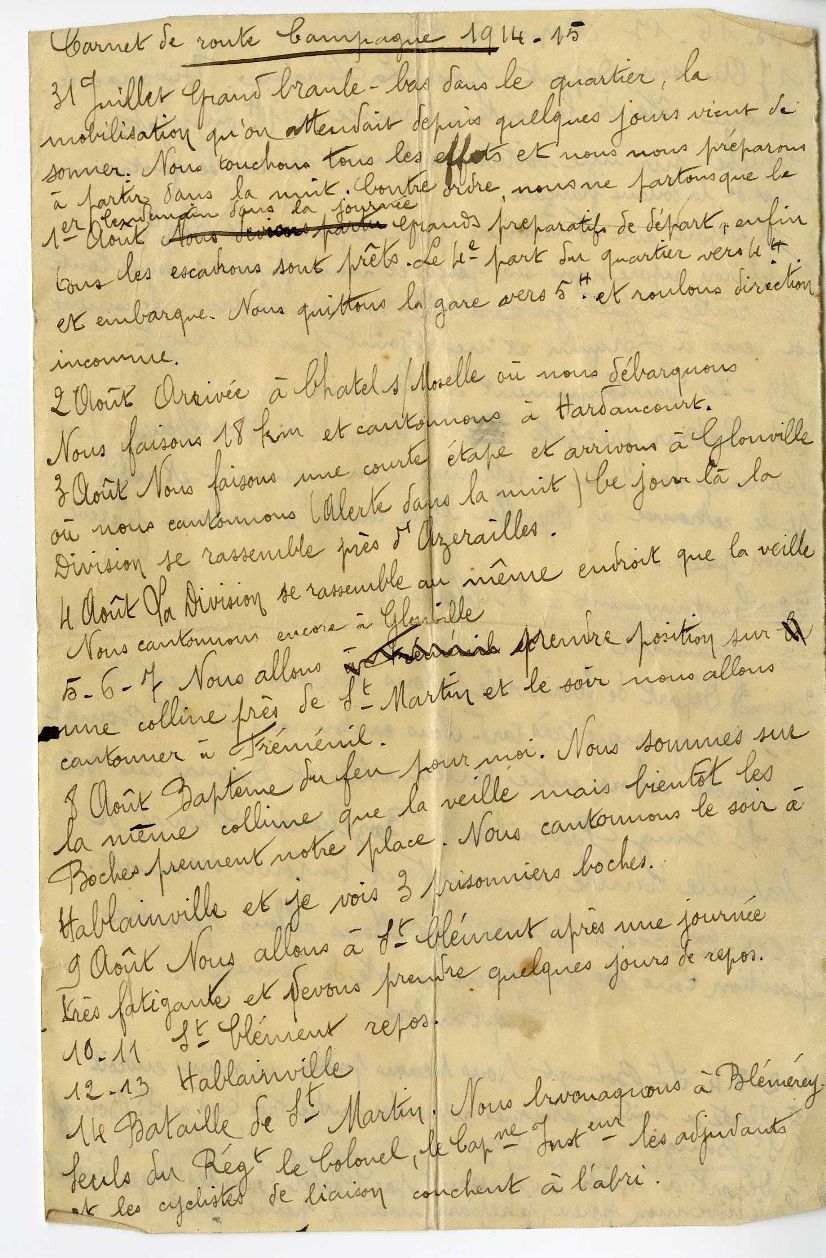 Carnet de route Campagne 1914-15
31 Juillet Grand branle-bas dans le quartier, la
mobilisation qu'on attendait depuis quelques jours vient de
sonner. Nous touchons tous les effets et nous nous préparons
à partir dans la nuit. Contre ordre, nous ne partons que le
lendemain dans la journée
1er Août Nous devions partir grands preparatifs de départ, enfin
tous les escadrons sont prêts. Le 4e part du quartier vers 4H
et embarque. Nous quittons la gare vers 5H et roulons direction
inconnue.
2 Août Arrivée à Chatel s/Moselle où nous débarquons
Nous faisons 18 km et cantonnons à Hardancourt.
3 Août Nous faisons une courte étape et arrivons à Glonville
où nous cantonnons (Alerte dans la nuit) Ce jour là la
Division se rassemble près d'Azerailles.
4 Août La Division se rassemble au même endroit que la veille
Nous cantonnons encore à Glonville
5-6-7 Nous allons prendre position sur
une colline près de St Martin et le soir nous allons
cantonner à Fréménil.
8 Août Bapteme du feu pour moi. Nous sommes sur
la même colline que la veille mais bientôt les
Boches prennent notre place. Nous cantonnons le soir à
Hablainville et je vois 3 prisonniers boches.
9 Août Nous allons à St Clément après une journée
très fatigante et devons prendre quelques jours de repos.
10-11 St Clément repos.
12-13 Hablainville
14 Bataille de St Martin. Nous bivouaquons à Blémérey.
Seuls du Régt le Colonel, le Capne Insteur les adjudants
et les cyclistes de liaison couchent à l'abri.